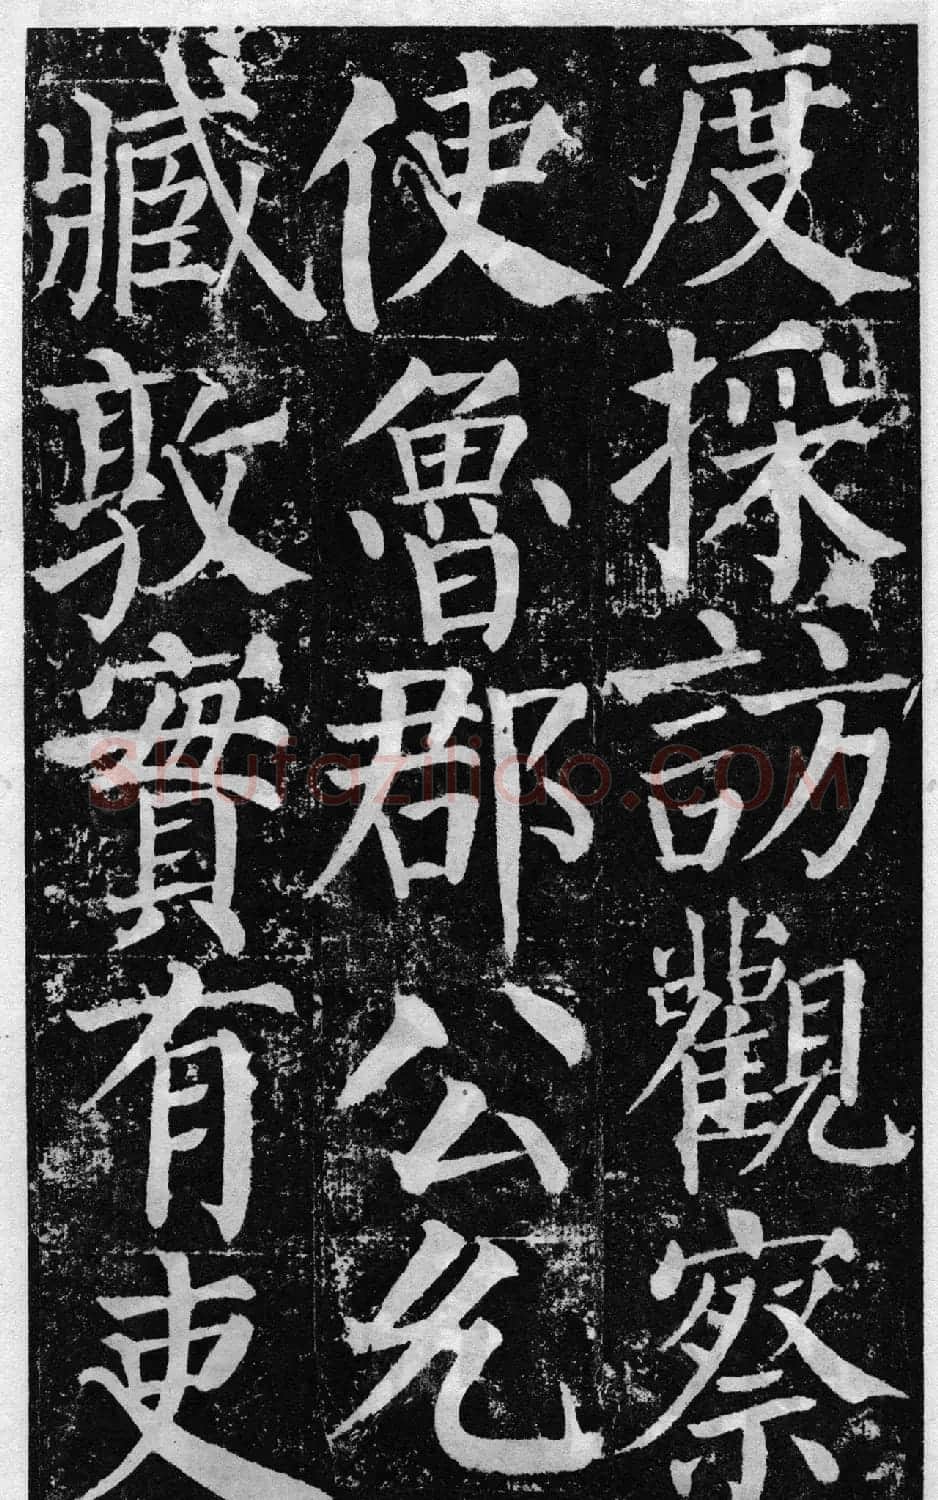 度採訪觀察
使魯郡公允
臧敦實有吏
Shufaziliao.COM